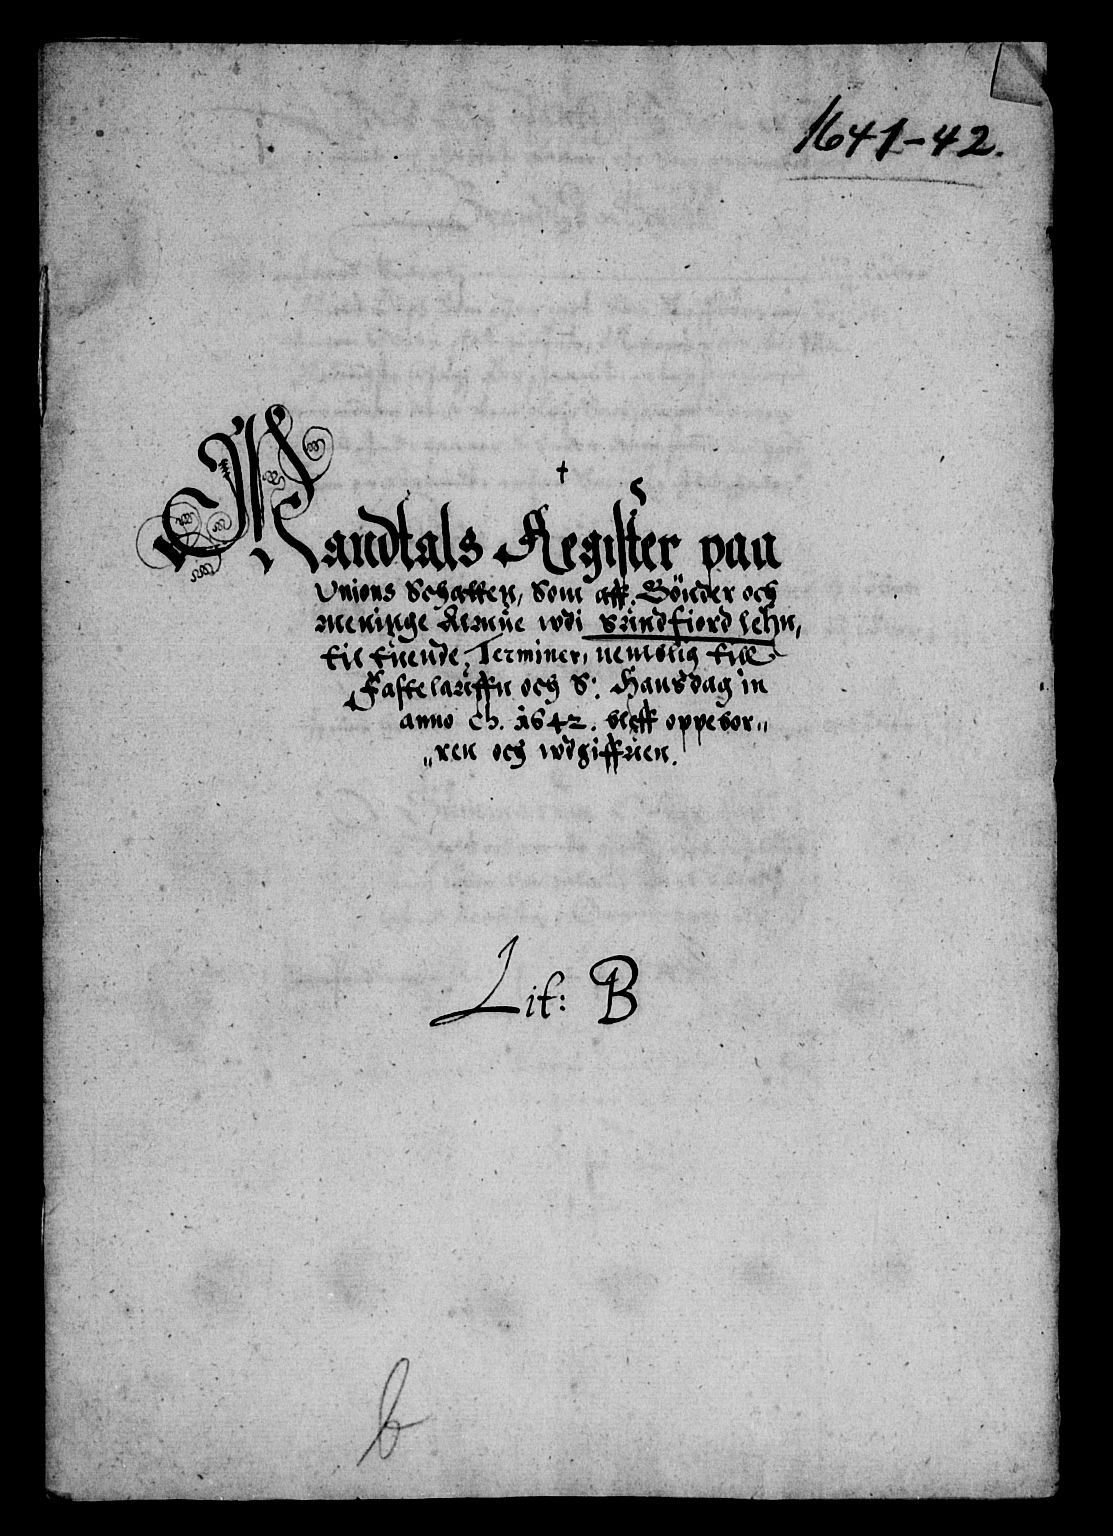 1641-42.
†
Mandtals Register paa
Unions Schatten, Som aff Bönder och
meninge Almue udi Sundfiord lehn,
til tuende Terminer, nembtlig till
Fastelaffn och S: Hansdag in
anno Ch. 1642. bleff oppebor„
„ren och udgiffuen.
Lit: B
b